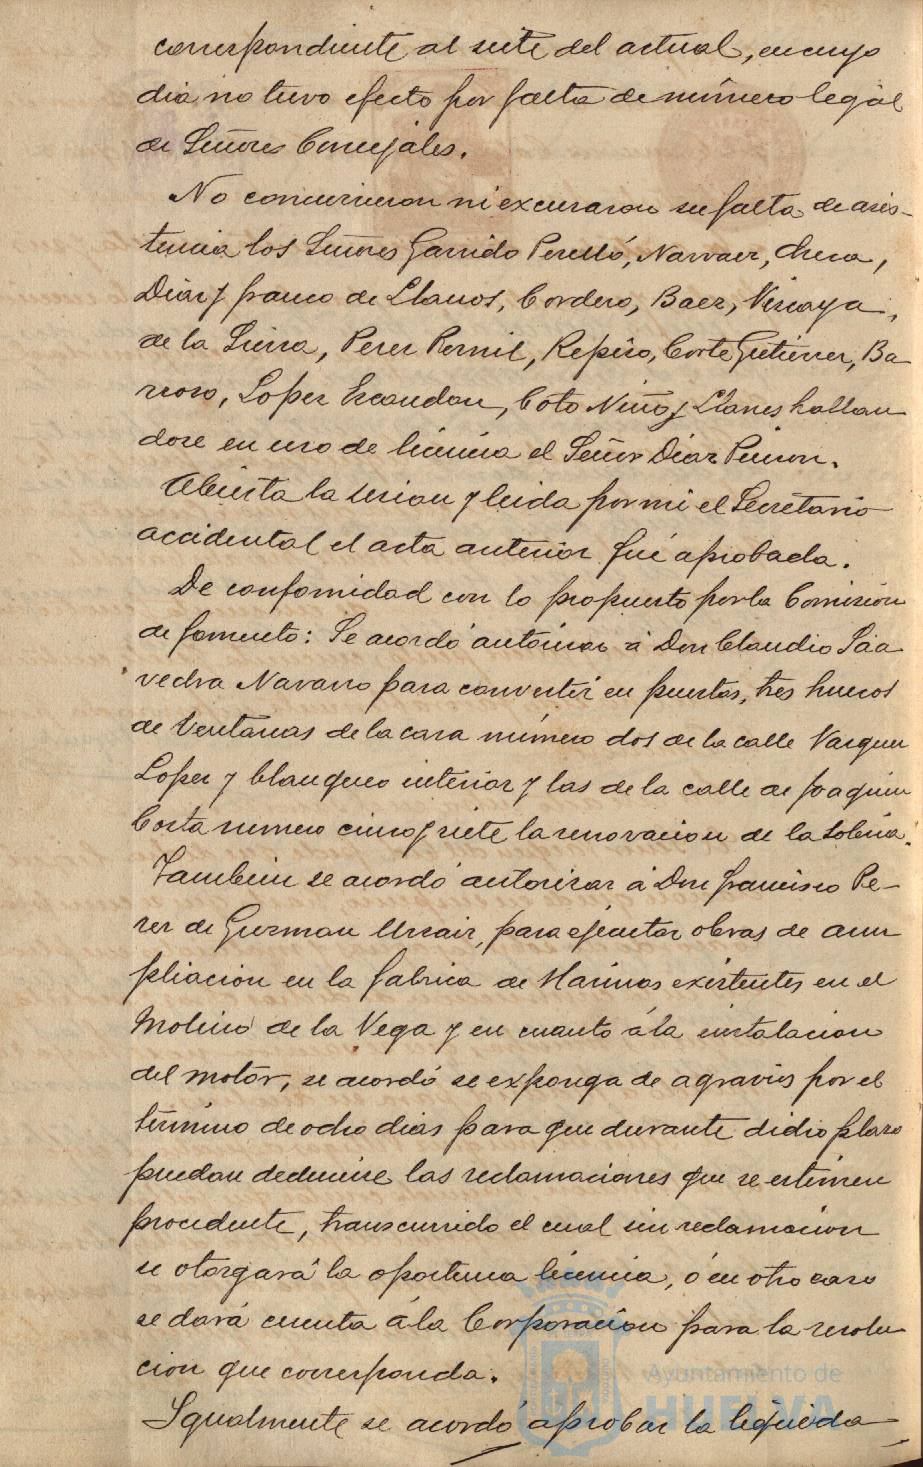 correspondiente al siete del actual, en cuyo
dia no tuvo efecto por falta de número legal
de Señores Concejales.
No concurrieron ni excusaron su falta de asis-
tencia los Señores Garrido Perelló, Narvaez, Checa,
Diaz y franco de Llanos, Cordero, Baez, Vizcaya,
de la Sierra, Perez Pernil, Repiso, Corte Gutierrez, Ba
rroso, Lopez Escandon, Coto Niño y Llanes hallan
dose en uso de licencia el Señor Diaz Pinzon.
Abierta la sesion y leida por mi el Secretario
accidental el acta anterior fué aprobada.
De confomidad con lo propuesto por la Comision
de fomento: Se acordó autorizar á Don Claudio Saa
vedra Navarro para convertir en puertas, tres huecos
de ventanas de la casa número dos de la calle Vazquez
Lopez y blanqueo interior y las de la calle de Joaquin
Costa numero cinco y siete la renovacion de la solería.
Tambien se acordó autorizar á Don francisco Pe-
rez de Guzman Urzaiz, para ejecutar obras de am
pliacion en la fabrica de Harinas existentes en el
Molino de la Vega y en cuanto á la instalacion
del motor, se acordó se exponga de agravios por el
término de ocho dias para que durante dicho plazo
puedan deducirse las reclamaciones que se estimen
procedente, transcurrido el cual sin reclamacion
se otorgará la oportuna licencia, ó en otro caso
se dará cuenta á la Corporacion para la resolu
cion que corresponda.
Igualmente se acordó aprobar la liquida
Ayuntamiento de
HUELVA